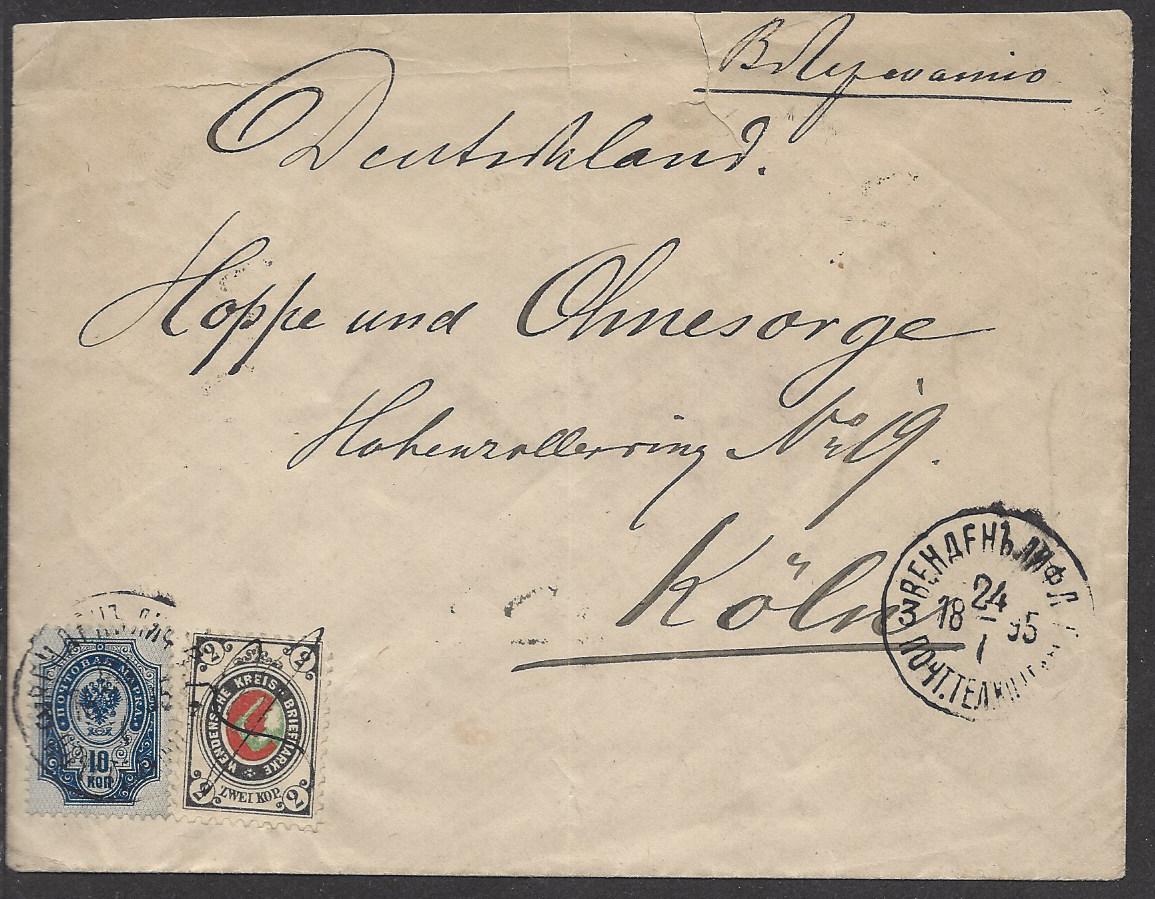 В Германію
Deutschland.
Hoppe und Ohnesorge
Hohenzollernring No 19.
Köln
ВЕНДЕНЪ ЛИФЛ
24
18 95
I
3
ПОЧТ. ТЕЛ.
ПОЧТОВАЯ МАРКА
10
КОП
2 2
WENDENSCHE KREIS-BRIEFMARKE
ZWEI KOP.
2 2